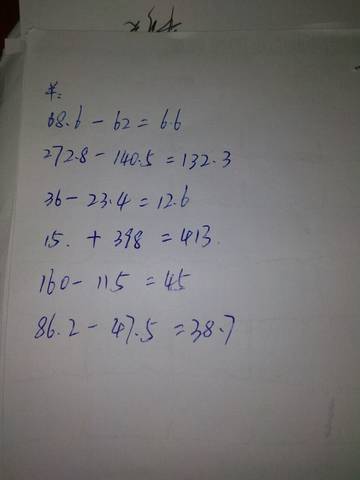 羊:
68.6 - 62 = 6.6
272.8 - 140.5 = 132.3
36 - 23.4 = 12.6
15. + 398 = 413.
160 - 115 = 45
86.2 - 47.5 = 38.7